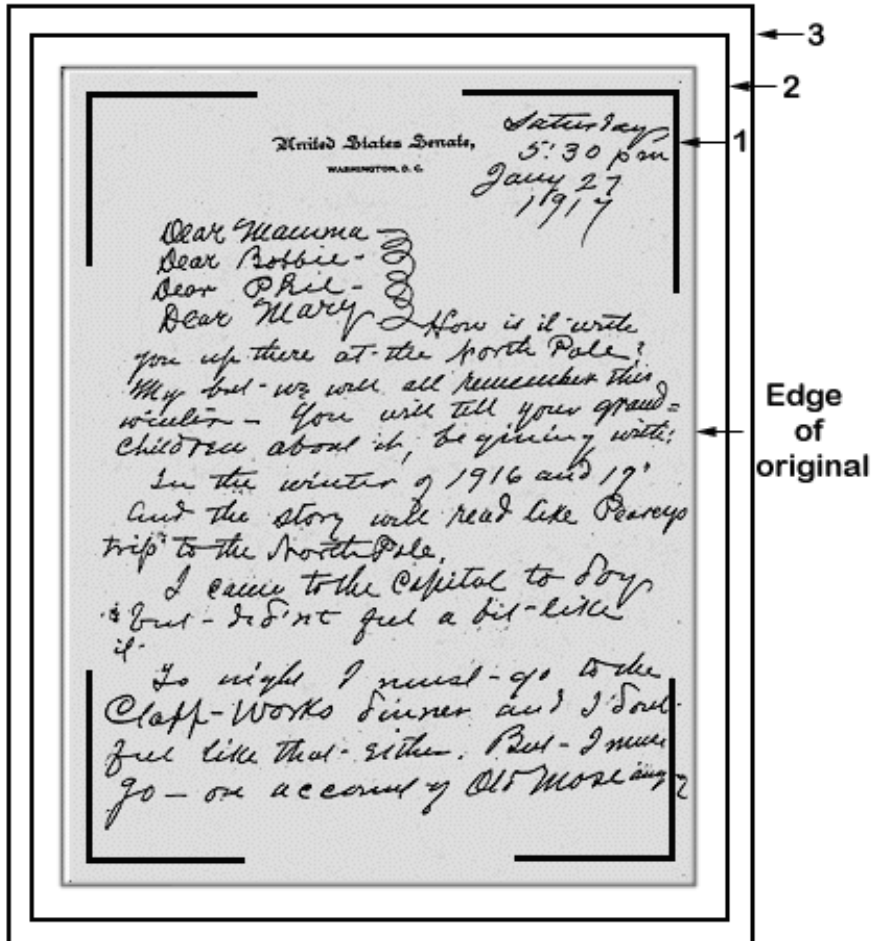 3
2
1
Edge
of
original
United States Senate,
WASHINGTON, D. C.
Saturday
5:30 pm
Jany 27
1917
Dear Mamma -
Dear Bobbie -
Dear Phil -
Dear Mary
How is it - write
you up there at the North Pole?
My but - we will all remember this
winter - You will tell your grand=
children about it, begining with:
In the winter of 1916 and 17'
and the story will read like Peareys
trip to the North Pole.
I came to the Capital to day
but - didn't feel a bit - like
it -
To night I must - go to the
Clapp - Works dinner and I don't
feel like that - either. But - I must
go - on account of Old Mose